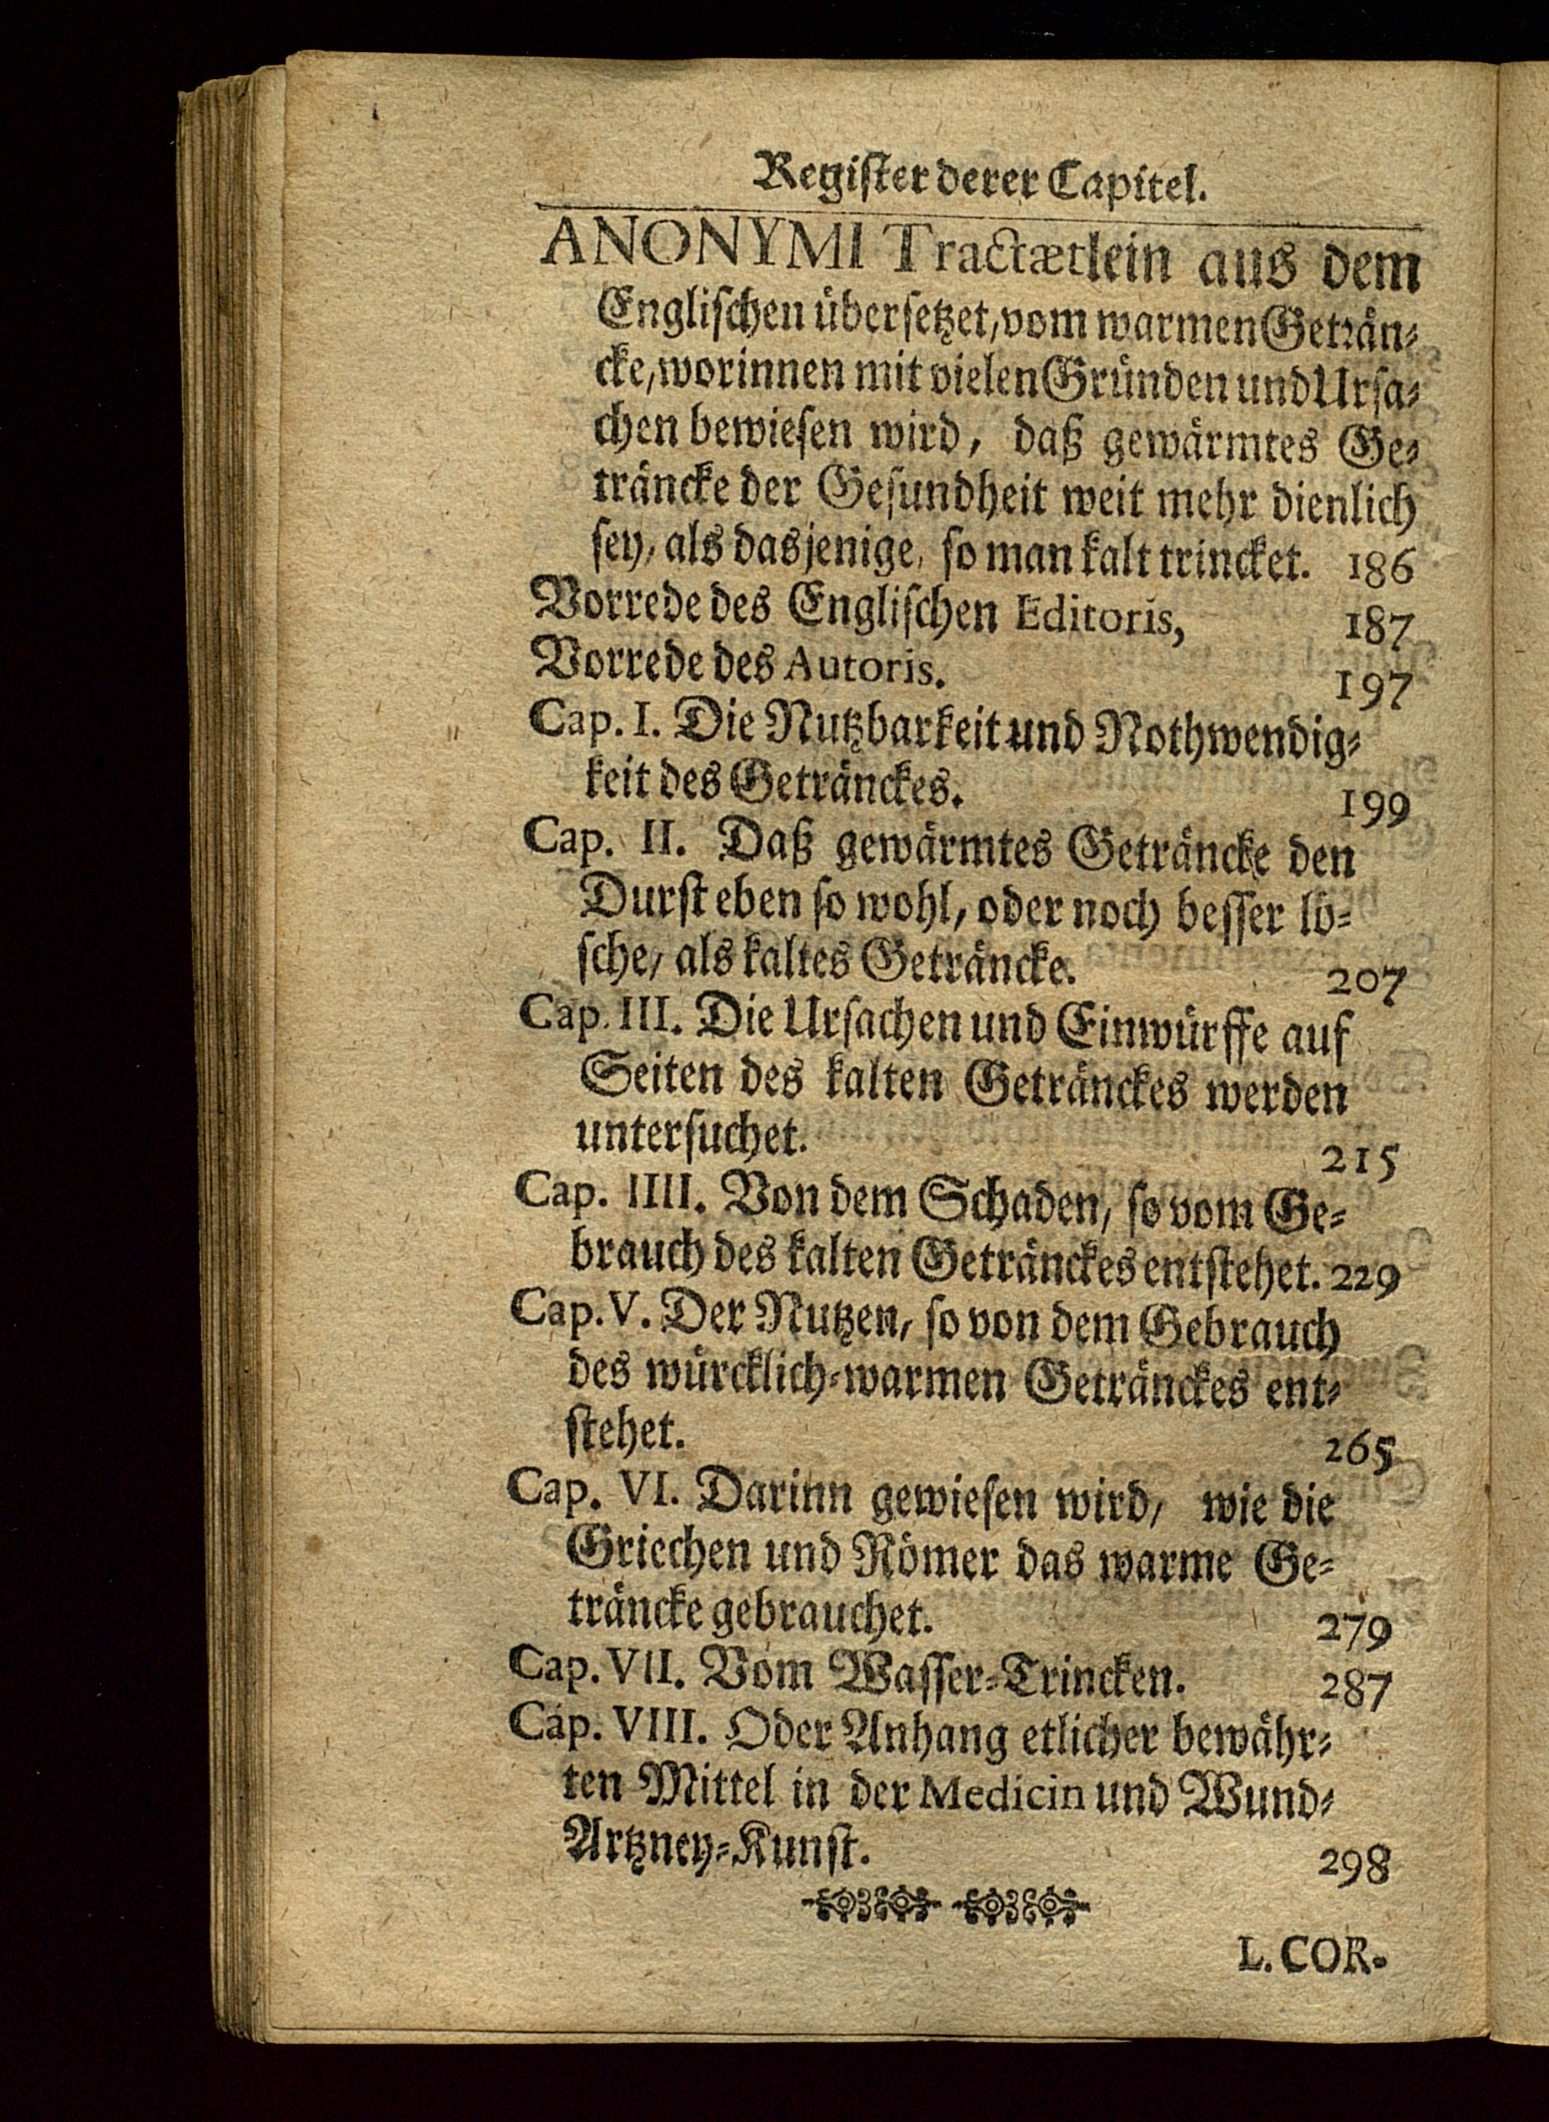 Regiſter derer Capitel.
ANONYMI Tractætlein aus dem
Engliſchen überſetzet, vom warmen Geträn⸗
cke, worinnen mit vielen Gründen und Urſa⸗
chen bewieſen wird, daß gewärmtes Ge⸗
träncke der Geſundheit weit mehr dienlich
ſey, als dasjenige, ſo man kalt trincket. 186
Vorrede des Engliſchen Editoris, 187
Vorrede des Autoris. 197
Cap. I. Die Nutzbarkeit und Nothwendig⸗
keit des Getränckes. 199
Cap. II. Daß gewärmtes Geträncke den
Durſt eben ſo wohl, oder noch beſſer lö⸗
ſche, als kaltes Geträncke. 207
Cap. III. Die Urſachen und Einwürffe auf
Seiten des kalten Getränckes werden
unterſuchet. 215
Cap. IIII. Von dem Schaden, ſo vom Ge⸗
brauch des kalten Getränckes entſtehet. 229
Cap. V. Der Nutzen, ſo von dem Gebrauch
des würcklich⸗warmen Getränckes ent⸗
ſtehet. 265
Cap. VI. Darinn gewieſen wird, wie die
Griechen und Römer das warme Ge⸗
träncke gebrauchet. 279
Cap. VII. Vom Waſſer⸗Trincken. 287
Cap. VIII. Oder Anhang etlicher bewähr⸗
ten Mittel in der Medicin und Wund⸗
Artzney⸗Kunſt. 298
L. COR-